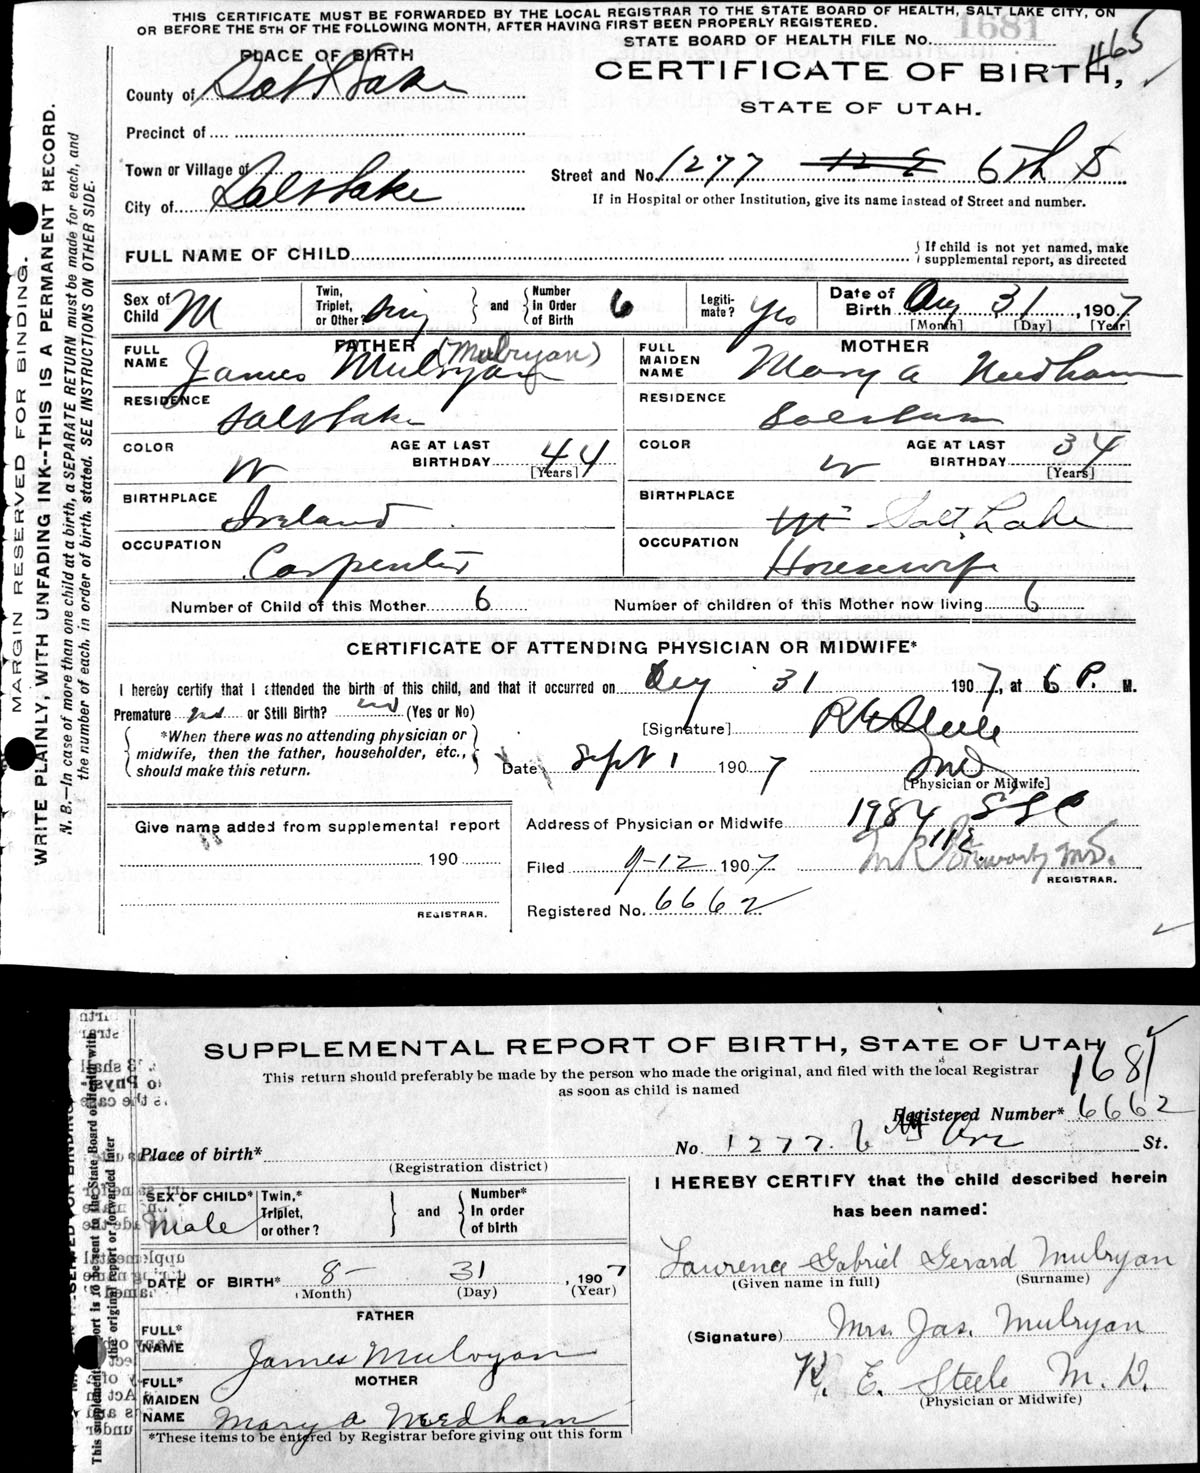 THIS CERTIFICATE MUST BE FORWARDED BY THE LOCAL REGISTRAR TO THE STATE BOARD OF HEALTH, SALT LAKE CITY, ON
OR BEFORE THE 5TH OF THE FOLLOWING MONTH, AFTER HAVING FIRST BEEN PROPERLY REGISTERED.
STATE BOARD OF HEALTH FILE No. 1681
465
PLACE OF BIRTH
CERTIFICATE OF BIRTH,
STATE OF UTAH.
County of Salt Lake
Precinct of
Town or Village of
Street and No. 1277 6th S
City of Salt Lake
If in Hospital or other Institution, give its name instead of Street and number.
FULL NAME OF CHILD
If child is not yet named, make supplemental report, as directed
Sex of Child M
Twin, Triplet, or Other? Sing and Number In Order of Birth 6
Legitimate? Yes
Date of Birth Aug 31, 1907
[Month] [Day] [Year]
FATHER
FULL NAME James Mulryan (Mulryan)
RESIDENCE Salt Lake
COLOR W
AGE AT LAST BIRTHDAY 44
[Years]
BIRTHPLACE Ireland
OCCUPATION Carpenter
MOTHER
FULL MAIDEN NAME Mary A Needham
RESIDENCE
COLOR W
AGE AT LAST BIRTHDAY 34
[Years]
BIRTHPLACE Salt Lake
OCCUPATION Housewife
Number of Child of this Mother 6
Number of children of this Mother now living 6
CERTIFICATE OF ATTENDING PHYSICIAN OR MIDWIFE*
I hereby certify that I attended the birth of this child, and that it occurred on Aug 31 1907, at 6 P. M.
Premature no or Still Birth? no (Yes or No)
*When there was no attending physician or midwife, then the father, householder, etc., should make this return.
[Signature] R E Steele
MD
[Physician or Midwife]
Date Sept 1 1907
Give name added from supplemental report
190
REGISTRAR.
Address of Physician or Midwife 1984
Filed 9-12 1907
REGISTRAR.
Registered No. 6662
MARGIN RESERVED FOR BINDING.
WRITE PLAINLY, WITH UNFADING INK--THIS IS A PERMANENT RECORD.
N. B.—In case of more than one child at a birth, a SEPARATE RETURN must be made for each, and
the number of each, in order of birth, stated. SEE INSTRUCTIONS ON OTHER SIDE.
SUPPLEMENTAL REPORT OF BIRTH, STATE OF UTAH
This return should preferably be made by the person who made the original, and filed with the local Registrar
as soon as child is named
1681
Registered Number* 6662
Place of birth*
(Registration district)
No. 1277 6 St.
SEX OF CHILD* Male
Twin,* Triplet, or other? and Number* In order of birth
DATE OF BIRTH* 8- 31, 1907
(Month) (Day) (Year)
FATHER
FULL* NAME James Mulryan
MOTHER
FULL* MAIDEN NAME Mary A Needham
*These items to be entered by Registrar before giving out this form
I HEREBY CERTIFY that the child described herein
has been named:
Lawrence Gabriel Gerard Mulryan
(Given name in full) (Surname)
(Signature) Mrs. Jas. Mulryan
R. E. Steele M. D.
(Physician or Midwife)